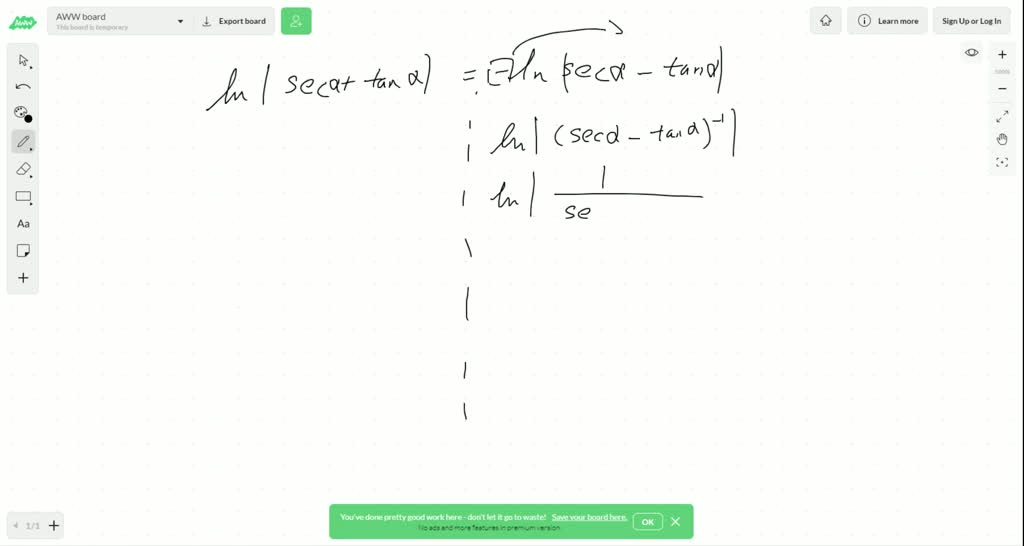 AWW
AWW board
This board is temporary
Export board
Learn more
Sign Up or Log In
ln | sec α + tan α | = - ln | sec α - tan α |
ln | (sec α - tan α)⁻¹ |
ln | 1
se
Aa
1/1
You've done pretty good work here - don't let it go to waste! Save your board here.
No ads and more features in premium version.
OK